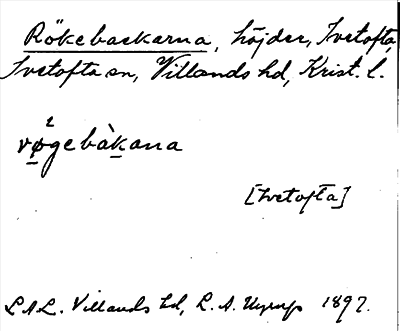 Rökebackarna, höjder, Ivetofta,
Ivetofta sn, Villands hd, Krist. l.
vø²gebàkana
[Ivetofta]
L A L. Villands hd, L. A. 1897.